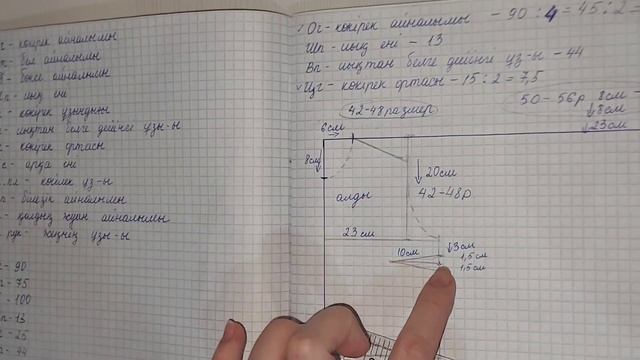 көкірек айналымы
бел айналымы
бөксе айналымы
иық ені
көкірек ұзындығы
иықтан белге дейінгі ұзы-ы
көкірек ортасы
арқа ені
көйлек ұз-ы
білезік айналымы
қолдың жуан айналымы
жеңнің ұзы-ы
90
75
100
13
25
44
Ог - көкірек айналымы - 90 : 4 = 45 : 2 =
Шп - иық ені - 13
Вп - иықтан белге дейінгі ұз-ы - 44
Цг - көкірек ортасы - 15 : 2 = 7,5
42-48 размер
50 - 56р 8см -
8см
23см
6см
8см
20см
42-48р
алды
23 см
10см
3см
1,5 см
1,5 см